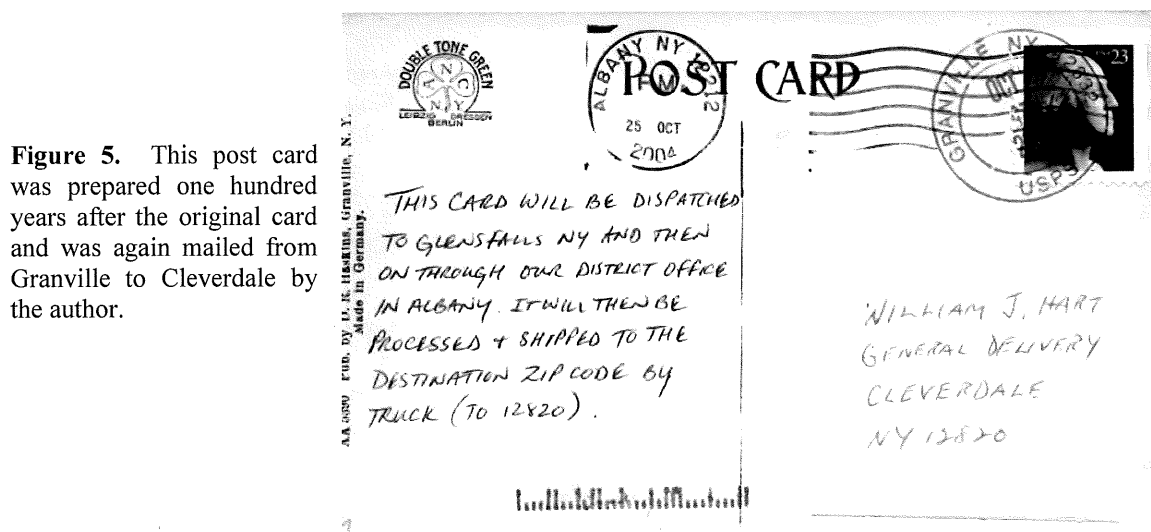 Figure 5. This post card
was prepared one hundred
years after the original card
and was again mailed from
Granville to Cleverdale by
the author.
DOUBLE TONE GREEN
ANCY
LEIPZIG DRESDEN
BERLIN
AA 3390 Pub. by D. R. Haskins, Granville, N. Y.
Made in Germany.
ALBANY NY 12212
PM
25 OCT
2004
POST CARD
GRANVILLE NY
OCT
USPS
23
THIS CARD WILL BE DISPATCHED
TO GLENSFALLS NY AND THEN
ON THROUGH OUR DISTRICT OFFICE
IN ALBANY. IT WILL THEN BE
PROCESSED + SHIPPED TO THE
DESTINATION ZIP CODE BY
TRUCK (TO 12820).
WILLIAM J. HART
GENERAL DELIVERY
CLEVERDALE
NY 12820